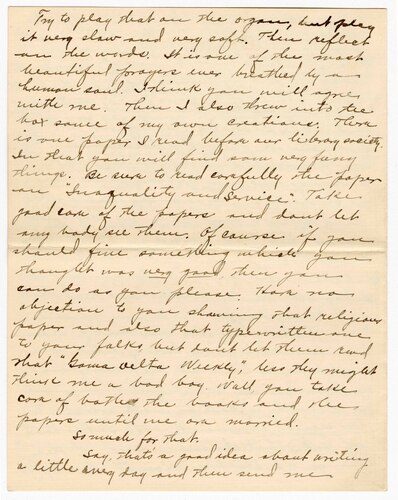 Try to play that on the organ, but play
it very slow and very soft. Then reflect
on the words. It is one of the most
beautiful prayers ever breathed by a
human soul. I think you will agree
with me. Then I also threw into the
box some of my own creations. There
is one paper I read before our literary society.
In that you will find som very funy
things. Be sure to read carefully the paper
on "Inaquality and Service". Take
good care of the papers and dont let
any body see them. Of course if you
should fine something which you
thought was very good then you
can do as you please. Have no
objection to you showing that religious
paper and also that typewritten one
to your folks but dont let them read
that "Gama Delta Weekly", less they might
think me a bad boy. Well you take
care of both the books and the
papers until we are married.
So much for that.
Say, thats a good idea about writing
a little every day and then send me